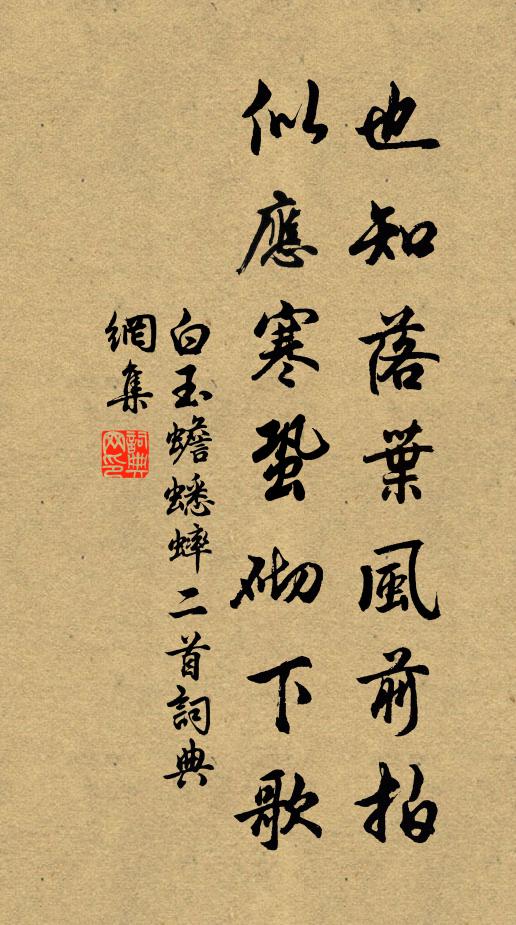 也知落葉風前拍
似應寒蛩砌下歌
白玉蟾蟋蟀二首詞典
網集
詞典
网印